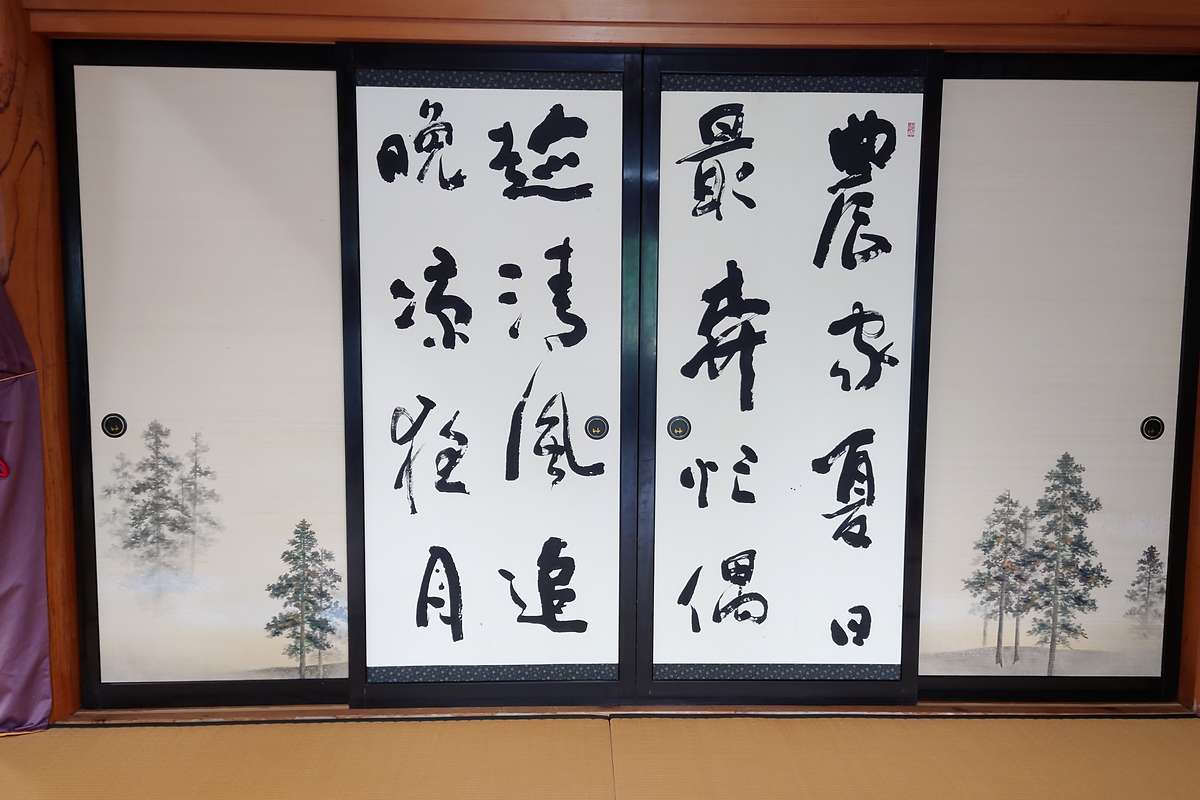 農家夏日
最奔忙偶
趁清風追
晩凉月